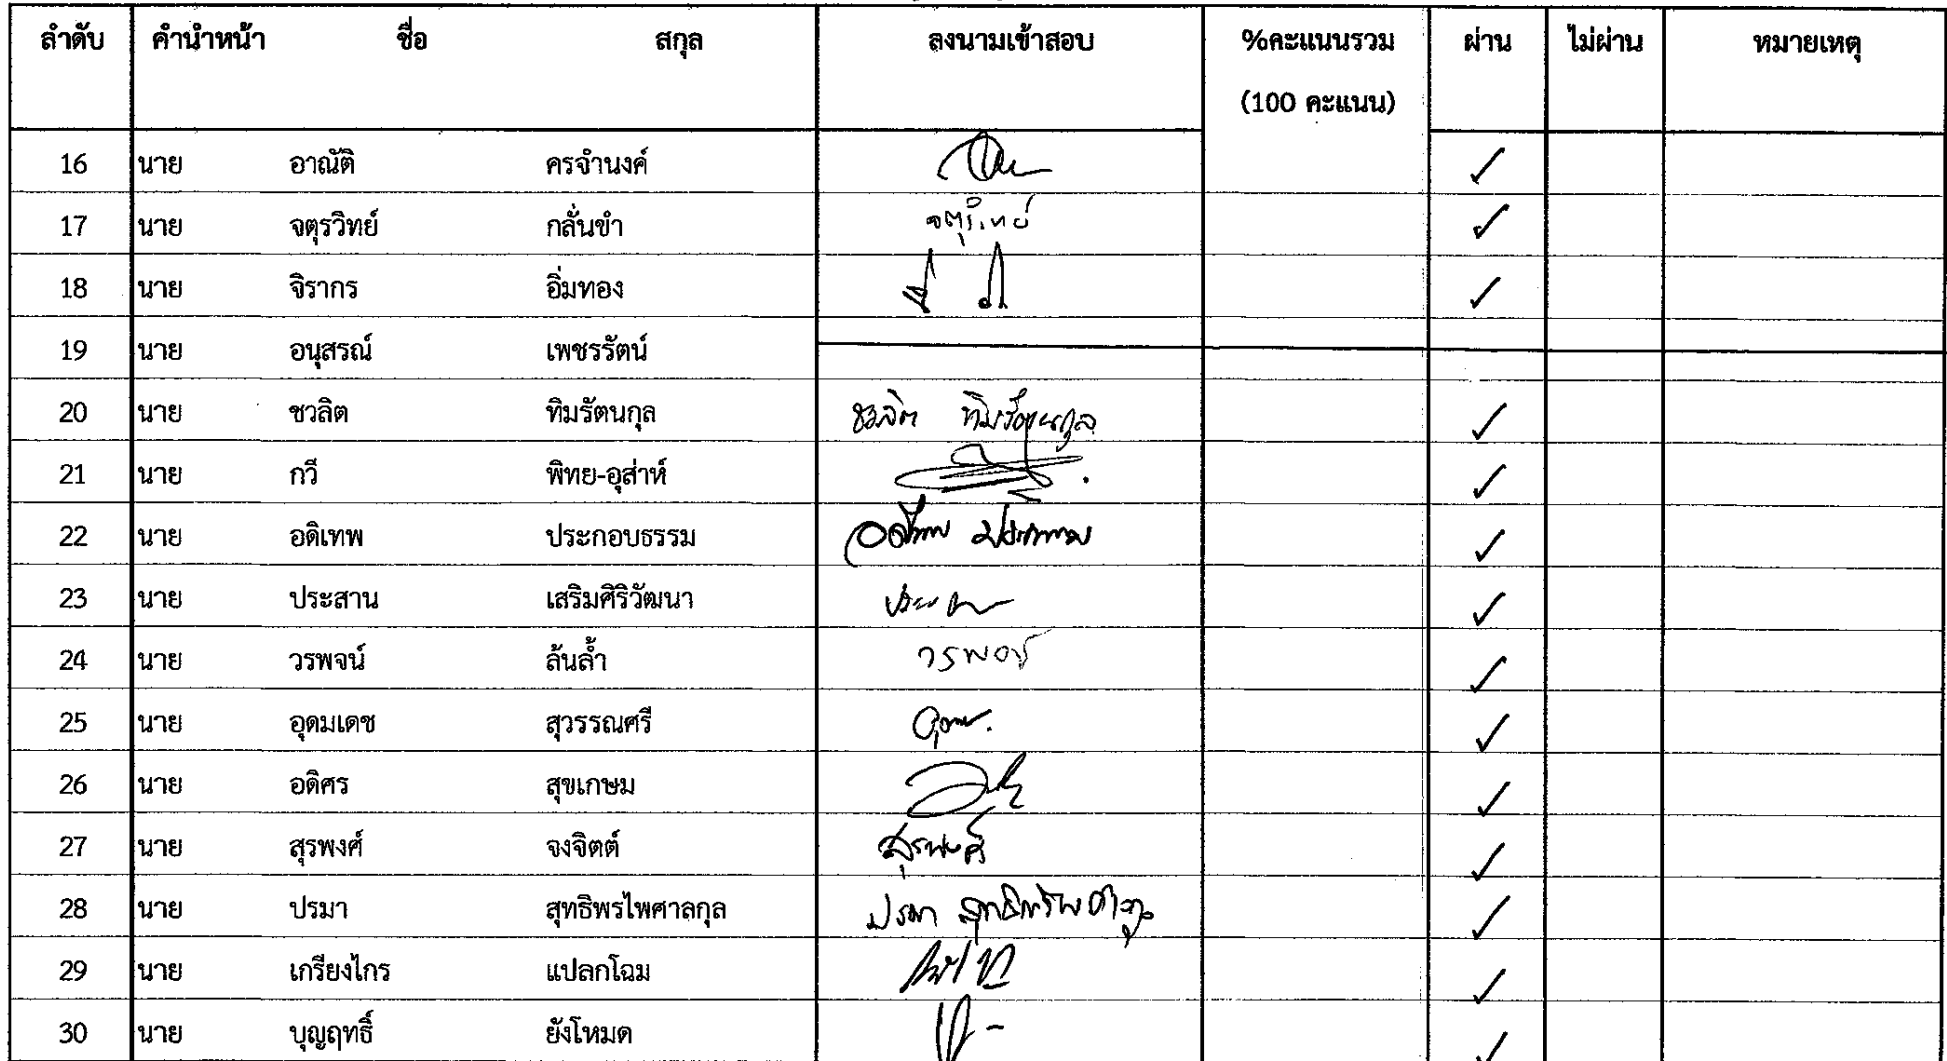 ลำดับ คำนำหน้า ชื่อ สกุล ลงนามเข้าสอบ %คะแนนรวม ผ่าน ไม่ผ่าน หมายเหตุ
(100 คะแนน)
16 นาย อาณัติ ครจำนงค์ ✓
17 นาย จตุรวิทย์ กลั่นขำ ✓
18 นาย จิรากร อิ่มทอง ✓
19 นาย อนุสรณ์ เพชรรัตน์
20 นาย ชวลิต ทิมรัตนกุล ชวลิต ทิมรัตนกุล ✓
21 นาย กวี พิทย-อุส่าห์ ✓
22 นาย อดิเทพ ประกอบธรรม ✓
23 นาย ประสาน เสริมศิริวัฒนา ✓
24 นาย วรพจน์ ล้นล้ำ ✓
25 นาย อุดมเดช สุวรรณศรี ✓
26 นาย อดิศร สุขเกษม ✓
27 นาย สุรพงศ์ จงจิตต์ สุรพงศ์ ✓
28 นาย ปรมา สุทธิพรไพศาลกุล ปรมา สุทธิพรไพศาลกุล ✓
29 นาย เกรียงไกร แปลกโฉม ✓
30 นาย บุญฤทธิ์ ยังโหมด ✓